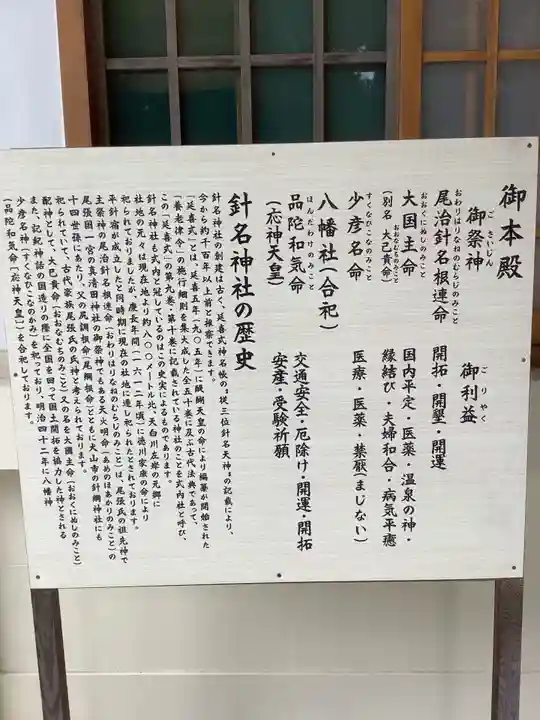 御本殿
御祭神
ごさいじん
御利益
ごりやく
尾治針名根連命
おわりはりなねのむらじのみこと
開拓・開墾・開運
大国主命
おおくにぬしのみこと
(別名 大己貴命)
おおなむちのみこと
国内平定・医薬・温泉の神・
縁結び・夫婦和合・病気平癒
少彦名命
すくなひこなのみこと
医療・医薬・禁厭(まじない)
八幡社(合祀)
品陀和気命
ほんだわけのみこと
(応神天皇)
交通安全・厄除け・開運・開拓
安産・受験祈願
針名神社の歴史
針名神社の創建は古く、延喜式神名帳の「従三位針名天神」の記載により、
今から約千百年以上前と推察できます。
「延喜式」とは、延喜五年(九〇五年)に醍醐天皇の命により編纂が開始された
「養老律令」の施行細則を集大成した全五十巻に及ぶ古代法典であって、
この「延喜式」の第九巻・第十巻に記載されている神社のことを式内社と呼び、
針名神社にも式内と冠しているのはこの史実によるものであります。
社地の元々は現在地より約八〇〇メートル北、天白川左岸の元郷に
祀られておりましたが、慶長年間(一六一二年頃)に徳川家康の命により
平針宿が成立したと同時期に現在の社地に遷し祀られたとされております。
主祭神の尾治針名根連命(おわりはりなねのむらじのみこと)は、尾張氏の祖先神で
尾張国一宮の真清田神社の御祭神でもある天火明命(あめのほあかりのみこと)の
十四世孫にあたり、父の尻調根命(尾綱根命)とともに犬山市の針綱神社にも
祀られていて、古代豪族尾張氏の氏神と考えられております。
配神として、大己貴命(おおなむちのみこと)又の名を大国主命(おおくにぬしのみこと)の
また、記紀神話の国造りの際に全国を回って国土開拓を協力した神とされる
少彦名神(すくなひこなのかみ)を祀っており、明治四十二年に八幡神
(品陀和気命「応神天皇」)を合祀しております。